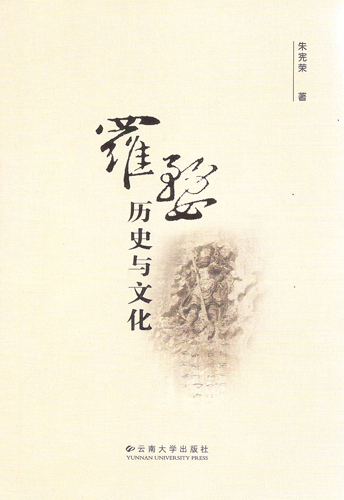 朱宪荣 著
羅婺
历史与文化
云南大学出版社
YUNNAN UNIVERSITY PRESS